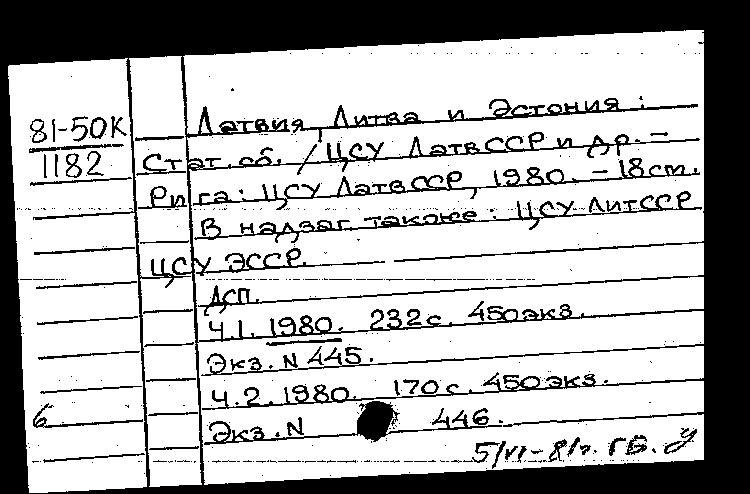 81-50К
1182
Латвия, Литва и Эстония :
Стат. сб. / ЦСУ ЛатвССР и др. –
Рига : ЦСУ ЛатвССР, 1980. – 18 см.
В надзаг. также : ЦСУ ЛитССР
ЦСУ ЭССР.
ДСП.
Ч.1. 1980. 232 с. 450 экз.
Экз. N 445.
Ч.2. 1980. 170 с. 450 экз.
6
Экз. N 446.
5/VI-81г. ГБ.